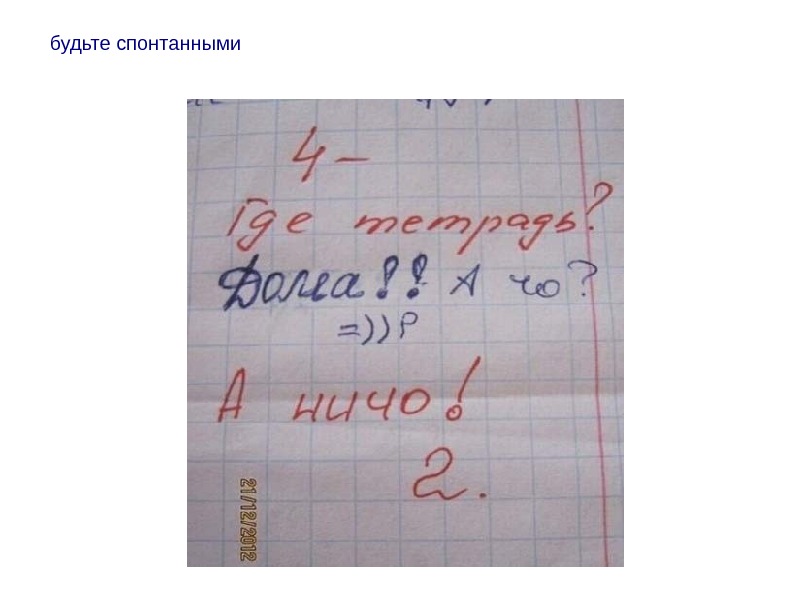 будьте спонтанными
4–
Где тетрадь?
Дома!! А чо?
=))Р
А ничо!
2.
21/12/2012